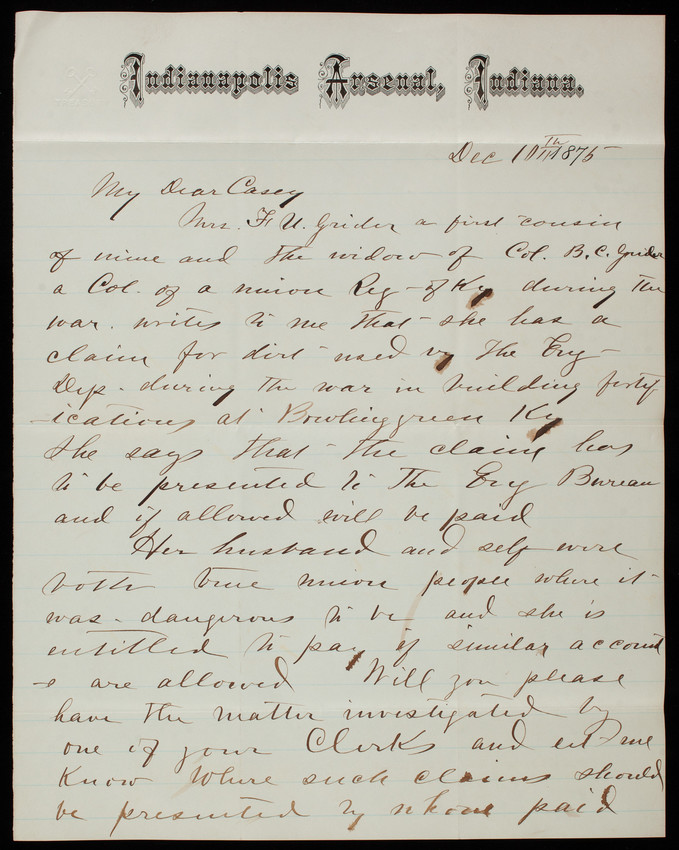 Indianapolis Arsenal, Indiana.
Dec 10th 1875
My Dear Casey
Mrs. F. U. Grider a first cousin
of mine and the widow of Col. B. C. Grider
a Col. of a union Reg - of Ky during the
war. writes to me that she has a
claim for dirt used by the Eng -
Dep - during the war in building fortif
-ications at Bowlinggreen Ky
She says that the claim has
to be presented to the Eng Bureau
and if allowed will be paid
Her husband and self were
both true union people where it
was - dangerous to be and she is
entitled to pay if similar account
-s are allowed Will you please
have the matter investigated by
one of your Clerks and let me
Know Where such claims should
be presented by whom paid